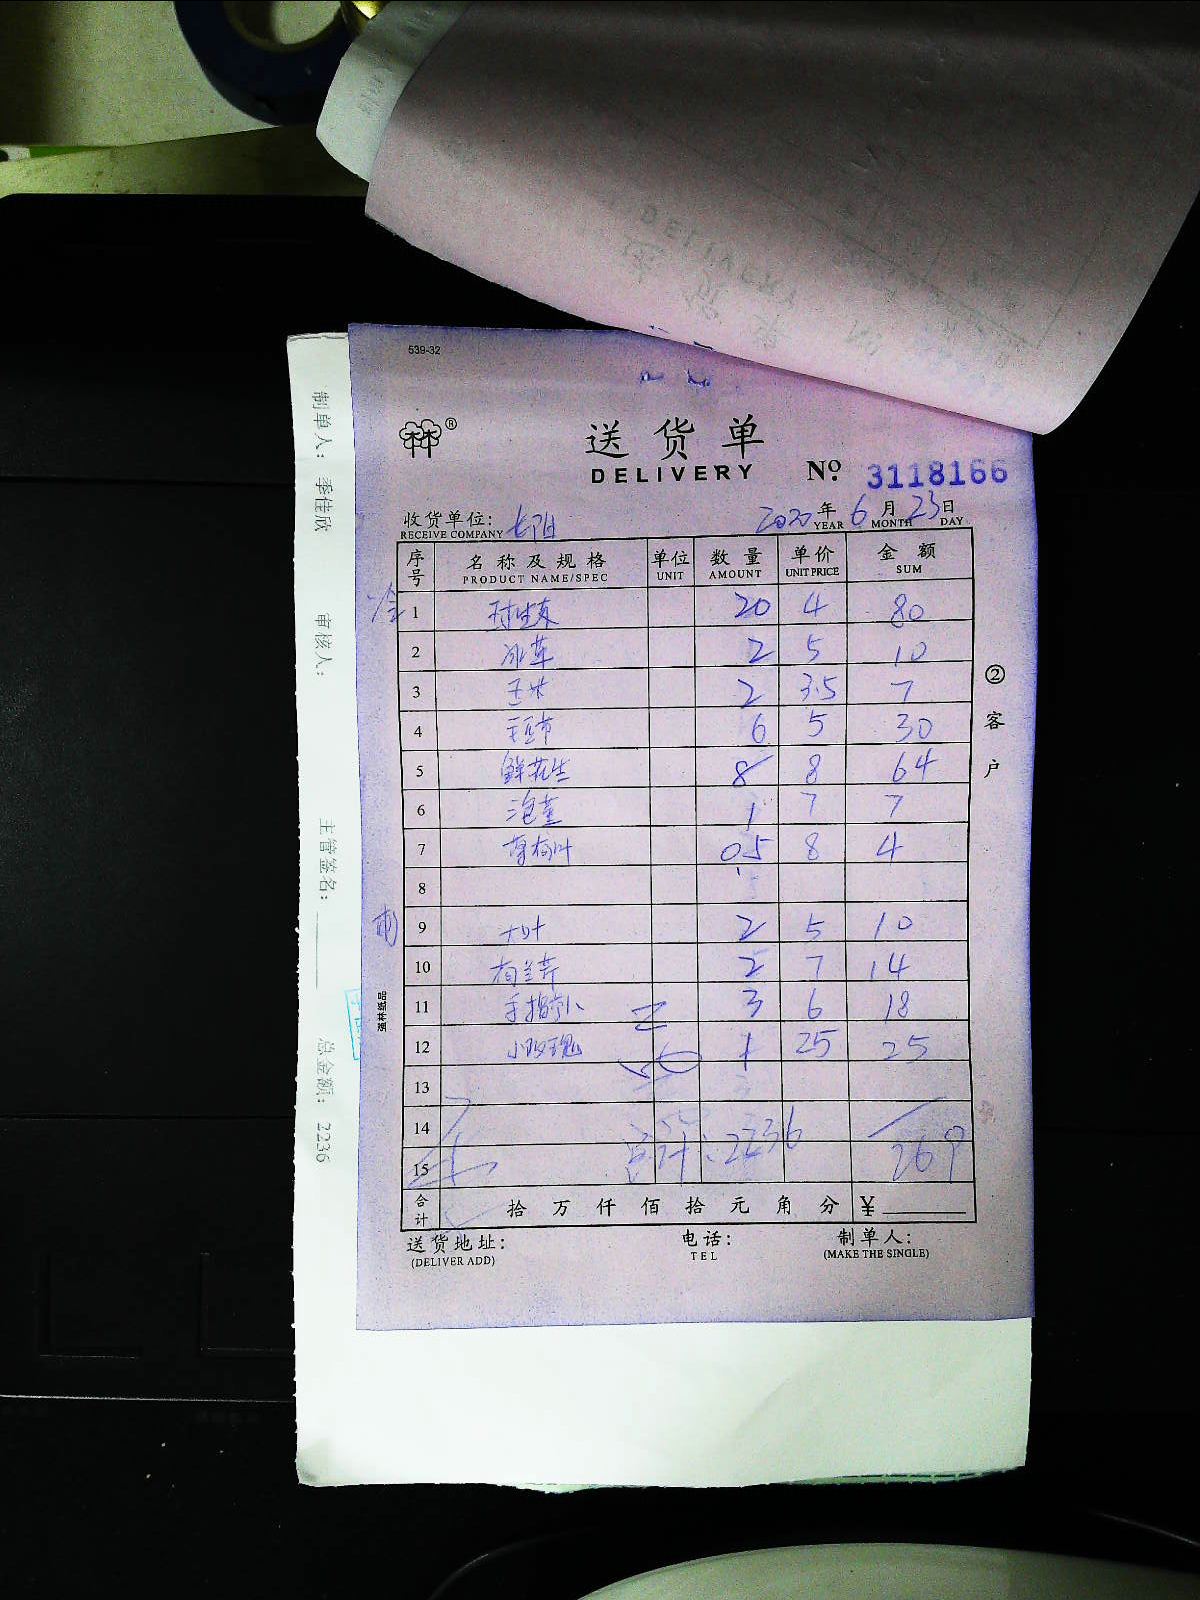 539-32
送货单
DELIVERY
№ 3118166
收货单位: 七阳 2020年6月23日
RECEIVE COMPANY YEAR MONTH DAY
序号 名称及规格 单位 数量 单价 金额
PRODUCT NAME/SPEC UNIT AMOUNT UNIT PRICE SUM
冷
1 20 4 80
2 冰草 2 5 10
3 玉米 2 3.5 7
4 6 5 30
5 鲜花生 8 8 64
6 泡姜 1 7 7
7 薄荷叶 0.5 8 4
8
9 2 5 10
10 西兰芹 2 7 14
11 手指 3 6 18
12 小玫瑰 1 25 25
13
14
15 总计:2236 269
合计 拾万仟佰拾元角分 ¥
送货地址: 电话: 制单人:
(DELIVER ADD) TEL (MAKE THE SINGLE)
②客户
强林纸品
制单人: 季佳欣 审核人: 主管签名: 总金额: 2236